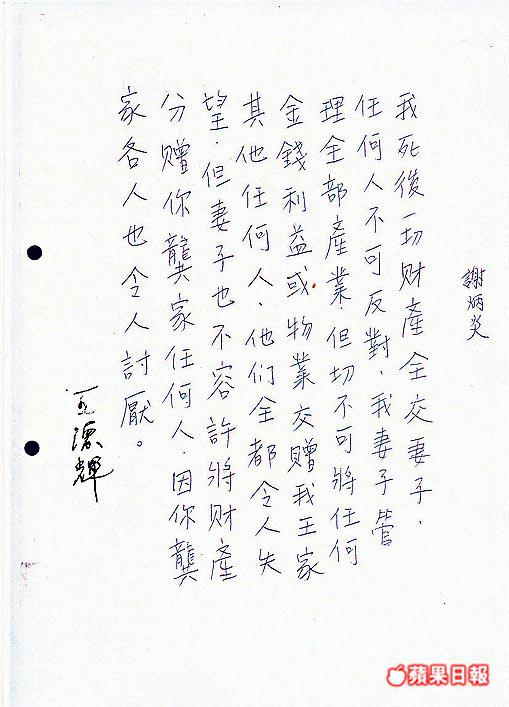 謝炳炎
我死後一切財產全交妻子.
任何人不可反對.我妻子管
理全部產業.但切不可將任何
金錢利益或物業交贈我王家
其他任何人.他们全都令人失
望.但妻子也不容許將財產
分贈你龔家任何人.因你龔
家各人也令人討厭。
蘋果日報